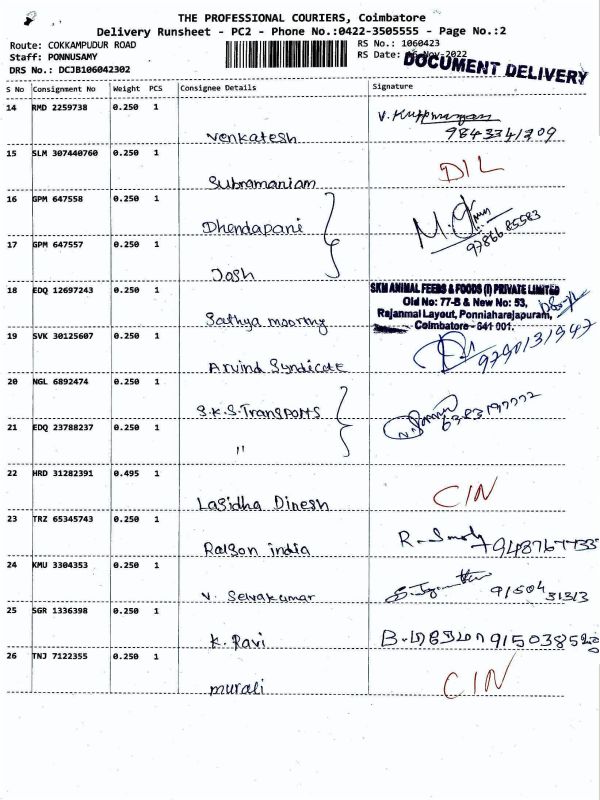 THE PROFESSIONAL COURIERS, Coimbatore
Delivery Runsheet - PC2 - Phone No.:0422-3505555 - Page No.:2
Route: COKKAMPUDUR ROAD
RS No.: 1060423
Staff: PONNUSAMY
RS Date: 16-Nov-2022
DRS No.: DCJB106042302
DOCUMENT DELIVERY
S No Consignment No Weight PCS Consignee Details Signature
14 RMD 2259738 0.250 1
Venkatesh
9843341209
15 SLM 307440760 0.250 1
Subramaniam
DIL
16 GPM 647558 0.250 1
Dhendapani
9786685583
17 GPM 647557 0.250 1
Josh
18 EDQ 12697243 0.250 1
Sathya moorthy
SKM ANIMAL FEEDS & FOODS (I) PRIVATE LIMITED
Old No: 77-B & New No: 53,
Rajanmal Layout, Ponniaharajapuram,
Coimbatore - 641 001.
19 SVK 30125607 0.250 1
Arvind Syndicate
9790131947
20 NGL 6892474 0.250 1
S.K.S.Transports
21 EDQ 23788237 0.250 1
"
22 HRD 31282391 0.495 1
Lasidha Dinesh
CIN
23 TRZ 65345743 0.250 1
Ralson india
24 KMU 3304353 0.250 1
V. Selvakumar
91504
31313
25 SGR 1336398 0.250 1
K. Ravi
26 TNJ 7122355 0.250 1
murali
CIN